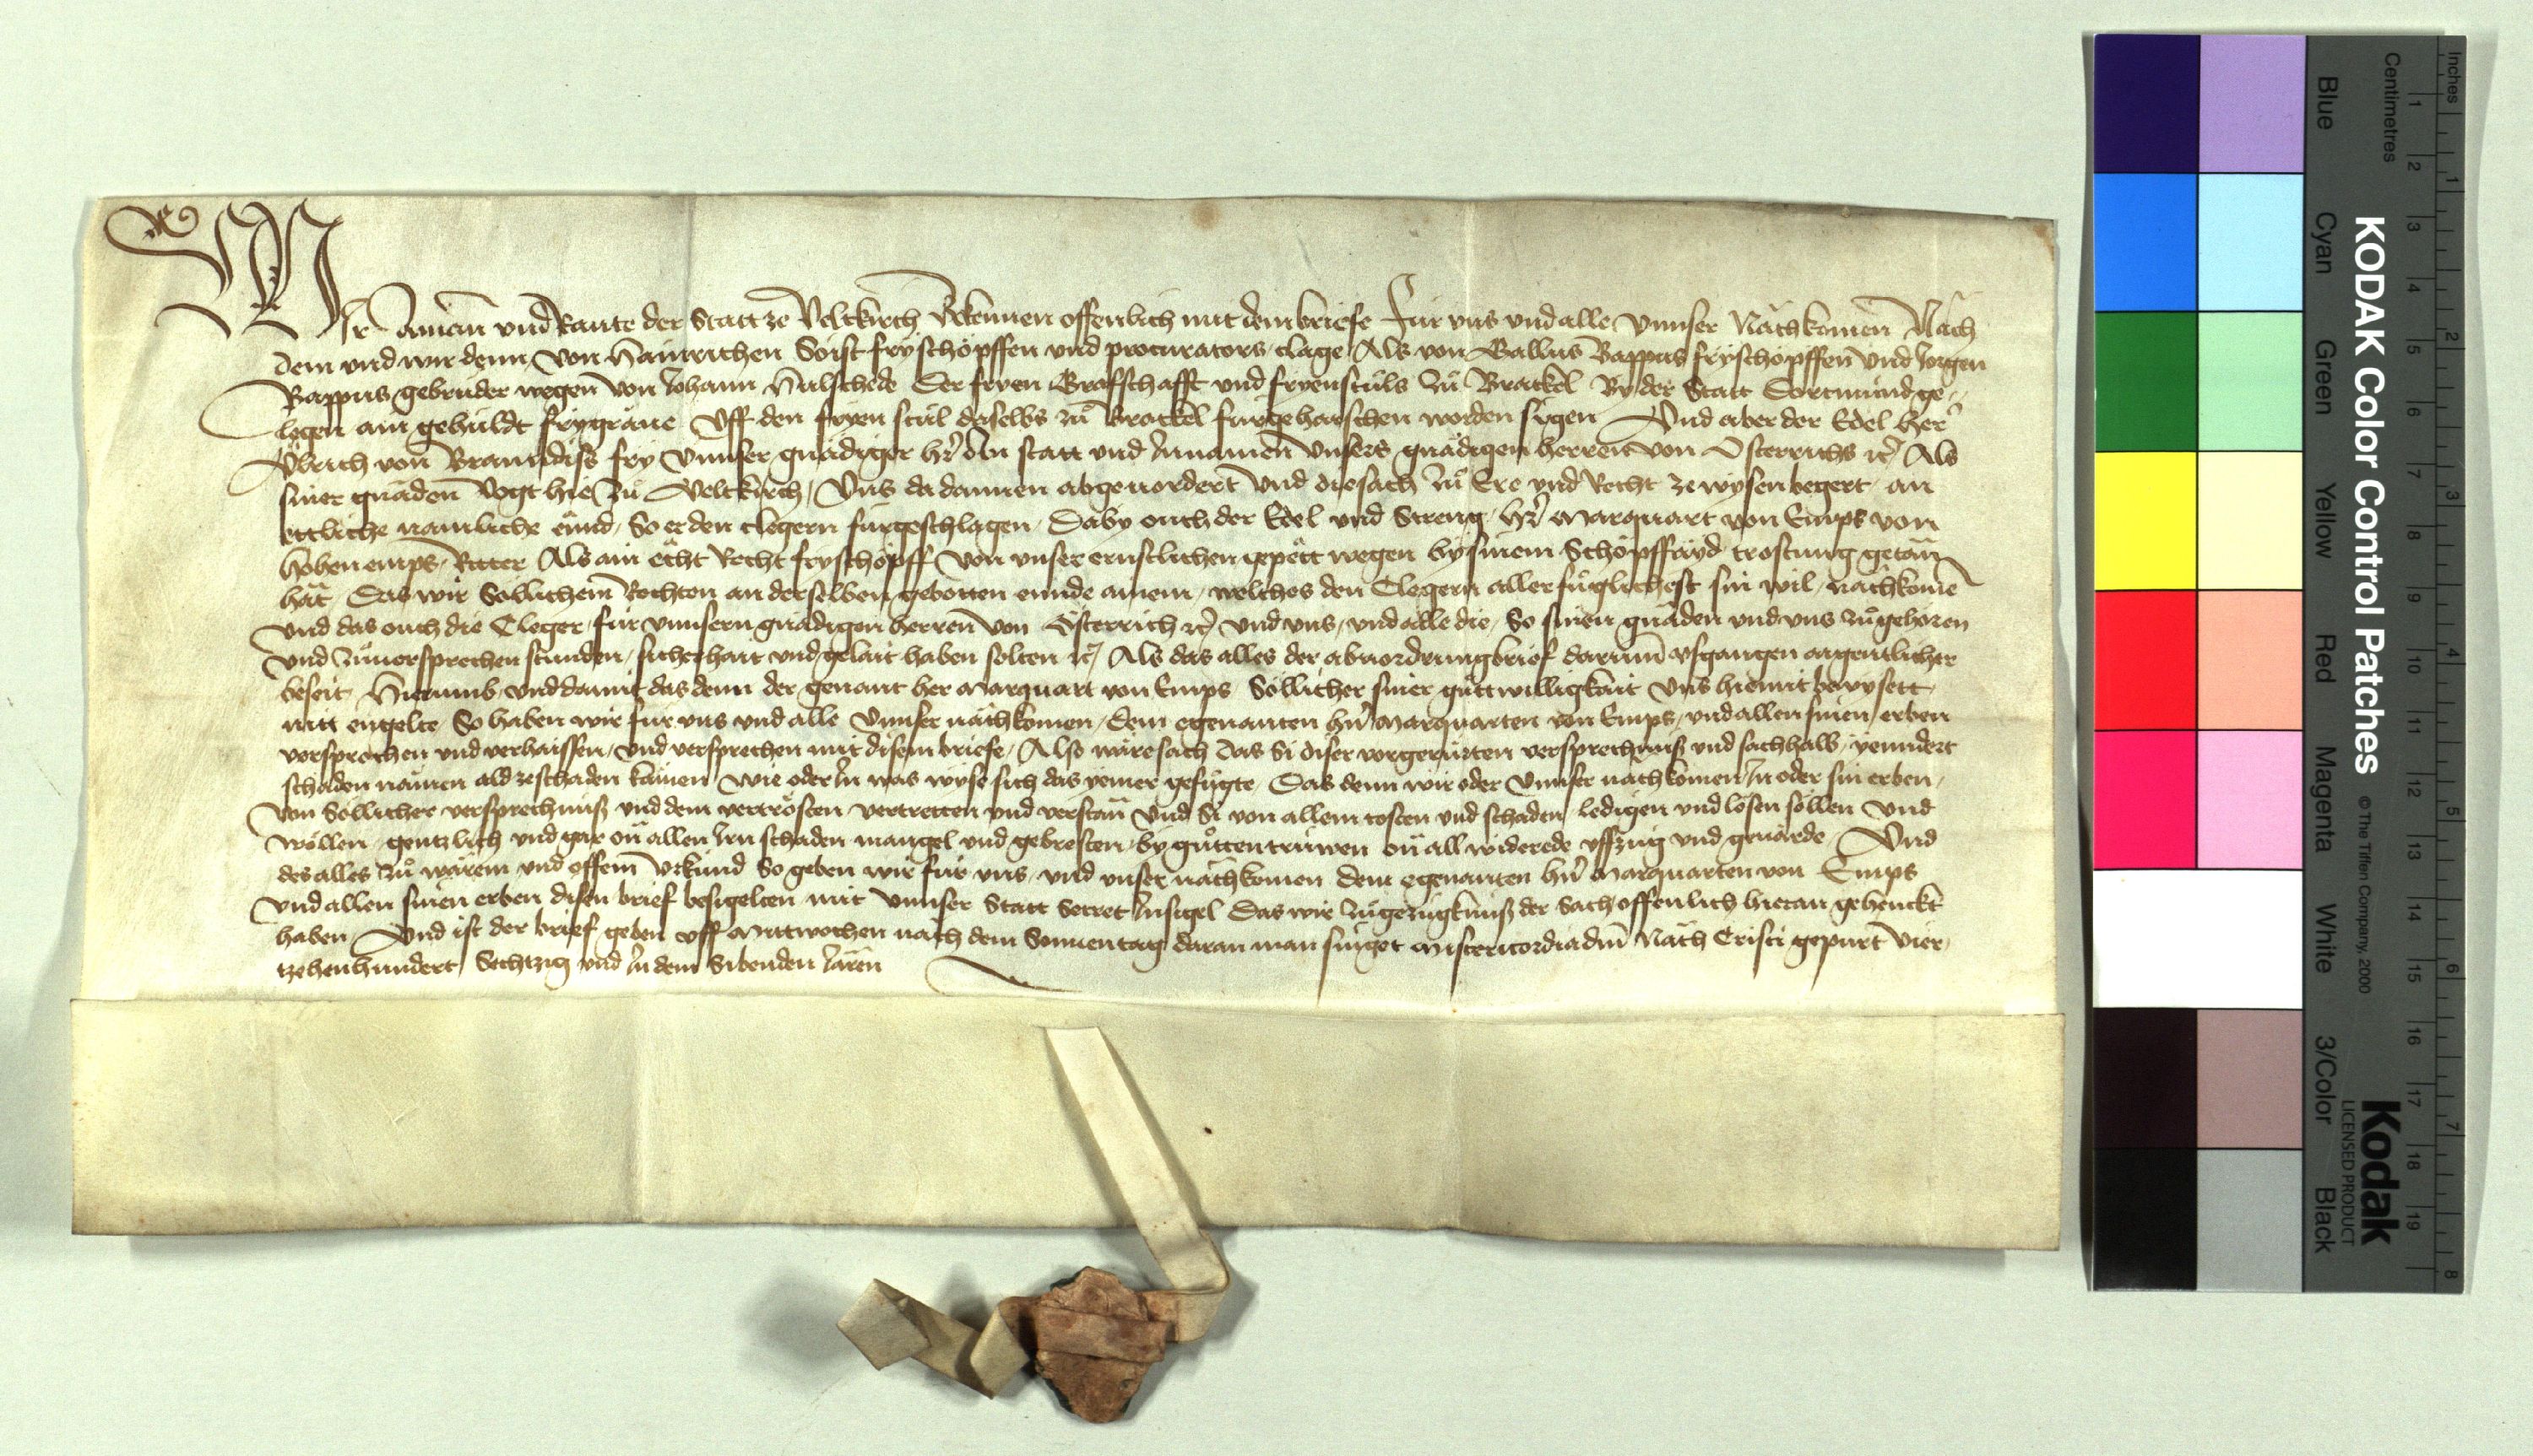 Wir Amann vnd Raute der Statt ze Veltkirch Bekennen offenlich mit dem briefe Fur vns vnd alle vnnser Nachkomen Nach
dem vnd wir denn von Hainrichen Soist fryschöpffen vnd procurators clage Als von Gallus Bappus fryschöpffen vnd Jörgen
Bappus gebruder wegen von Johann Hulschede Der fryen Grafschafft vnd fryenstůls zů Brackel By der Statt Dortmund ge-
legen ain gehuldt frygraue Vff den fryen stůl daselbs zů Brackel furgehaischen worden sygen Vnd aber der Edel her
Vlrich von Branndiss fry vnnser gnädiger hr An statt vnd Innamen vnsers gnädigen herren von Osterrichs ꝛc Als
siner gnaden Vogt hie zu Veltkirch, Vns da dannen abgeuordert vnd die sach zů Ere vnd Recht ze wysen begert an
ettliche namliche ennd, So er den clegern furgeschlagen, Daby ouch der Edel vnd Streng, hr Marquart von Emps von
hohen emps, Ritter Als ain echt Recht fryschöpff von vnser ernstlichen gepett wegen by sinem Schöpffayd trostung getan
hat, Das wir Söllichem Rechten an derselben gebotten ennde ainem, welches den Clegern aller fuglichest sin wil, nachkome
vnd das ouch die Cleger, fur vnnsern gnädigen herren von Österrich ꝛc vnd vns, vnd alle die, So sinen gnaden vnd vns zůgehoren
vnd zůuersprechen stunden, sicherhait vnd gelait haben solten ꝛc Als das alles der abuordrungbrief darumb vsgangen aigentlicher
beseit, Hierumb vnd damit das denn der genant her Marquart von Emps Söllicher siner gůttwilligkait Vns hiemit bewysett,
nitt engelte So haben wir fur vns vnd alle vnnser nachkomen, dem egenanten hrn Marquarten von Emps, vnd allen sinen erben
versprochen vnd verhaissen, vnd versprechen mit disem briefe, Also wäre sach das Si diser vorgerürten versprechnuß vnd sach halb, yenndert
schaden nämen ald ze schaden kämen wie oder In was wyse sich das yemer gefugte, Das denn wir oder vnnser nachkomen In oder sin erben,
von Söllicher versprechnuß vnd dem vertrösten vertretten vnd verstan Vnd Si von allem costen vnd schaden ledigen vnd lösen söllen vnd
wöllen, gentzlich vnd gar on allen Irn schaden mangel vnd gebresten, by gůtten trüwen on all widerede vffzug vnd geuärde, Vnd
des alles zů warem vnd offem Vrkund So geben wir fur vns, vnd vnser nachkomen dem egenanten hrn Marquarten von Emps
vnd allen sinen erben disen brief besigelten mit vnnser Statt Secret Insigel Das wir zůgezugknuß der Sach offenlich hieran gehenckt
haben, Vnd ist der brief geben vff Mittwochen nach dem Sonnentag daran man singet Misericordia dm Nach Cristi gepurt Vier-
tzehenhundert, Sechtzig vnd In dem Sibenden Jaren
KODAK Color Control Patches
© The Tiffen Company, 2000
Kodak
LICENSED PRODUCT
Blue Cyan Green Yellow Red Magenta White 3/Color Black
Inches 1 2 3 4 5 6 7 8
Centimetres 1 2 3 4 5 6 7 8 9 10 11 12 13 14 15 16 17 18 19